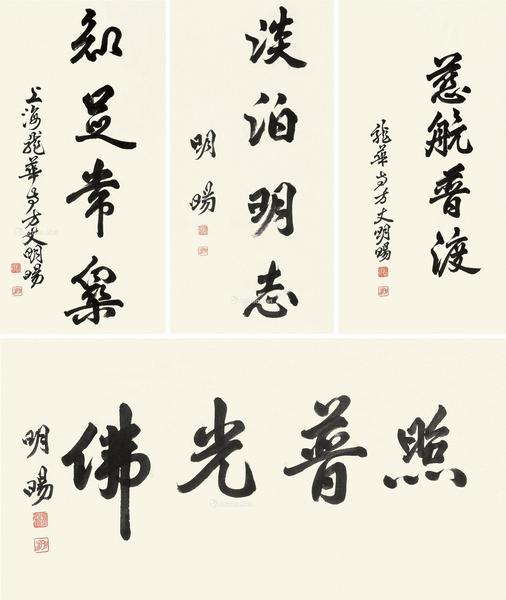 知足常樂
上海龍華寺方丈明暘
淡泊明志
明暘
慈航普渡
龍華寺方丈明暘
佛光普照
明暘